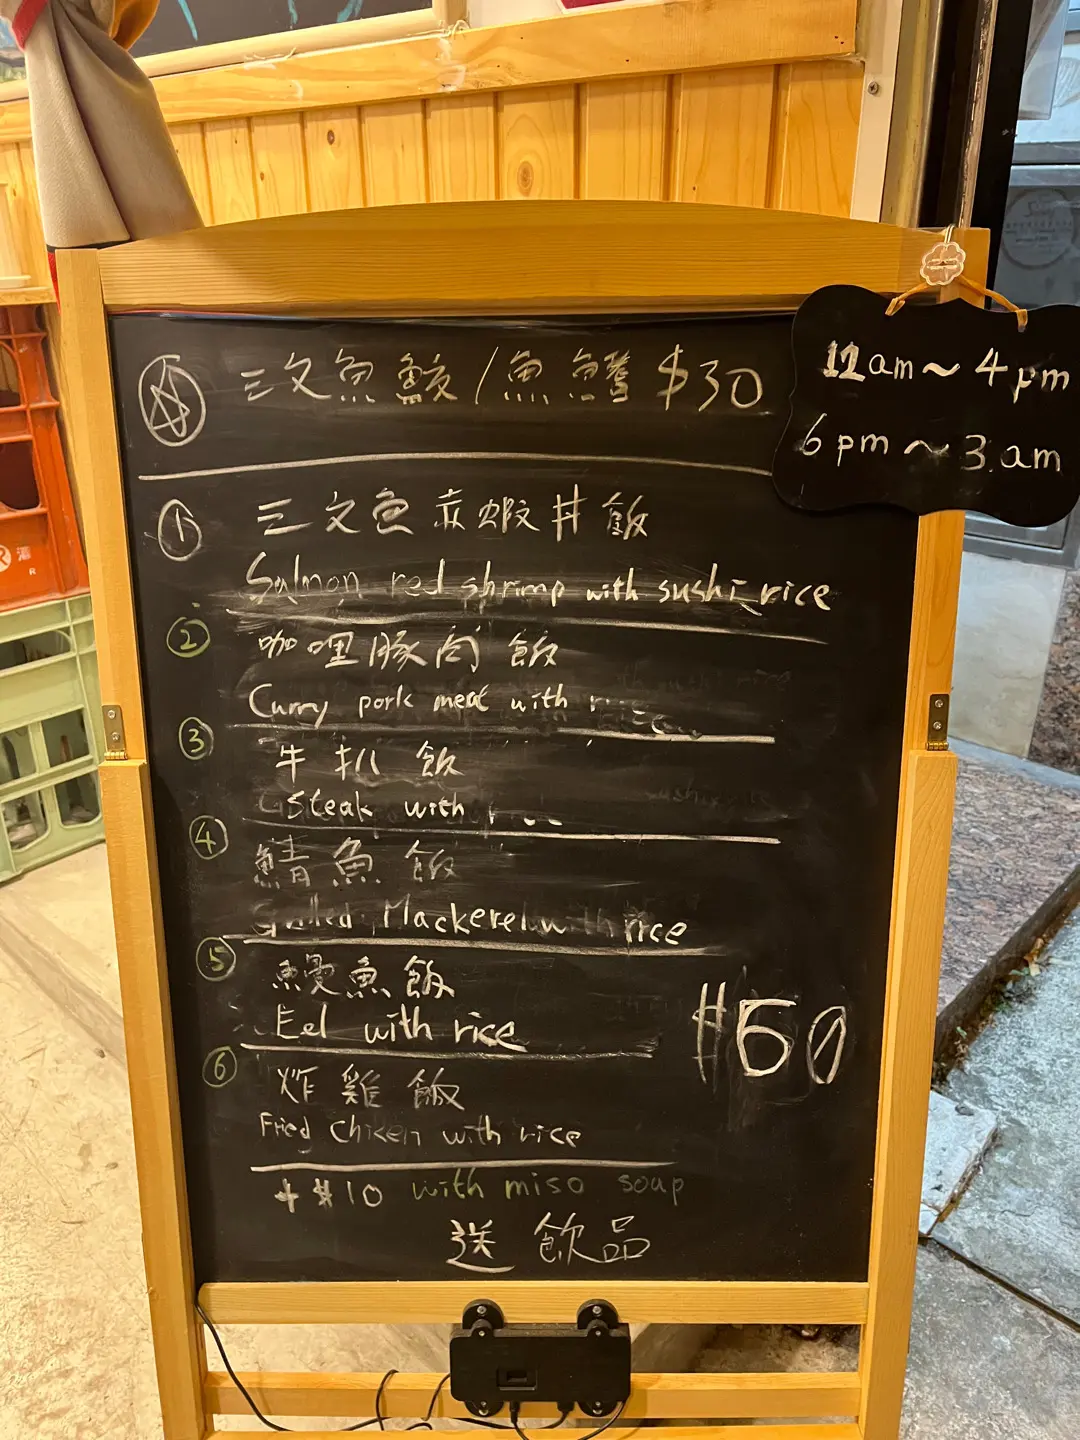 三文魚鮫/魚鱔 $30
12am~4pm
6pm~3am
① 三文魚赤蝦丼飯
Salmon red shrimp with sushi rice
② 咖哩豚肉飯
Curry pork meat with rice
③ 牛扒飯
Steak with
④ 鯖魚飯
Grilled Mackerel with rice
⑤ 鰻魚飯
Eel with rice
$60
⑥ 炸雞飯
Fried chicken with rice
+$10 with miso soup
送飲品